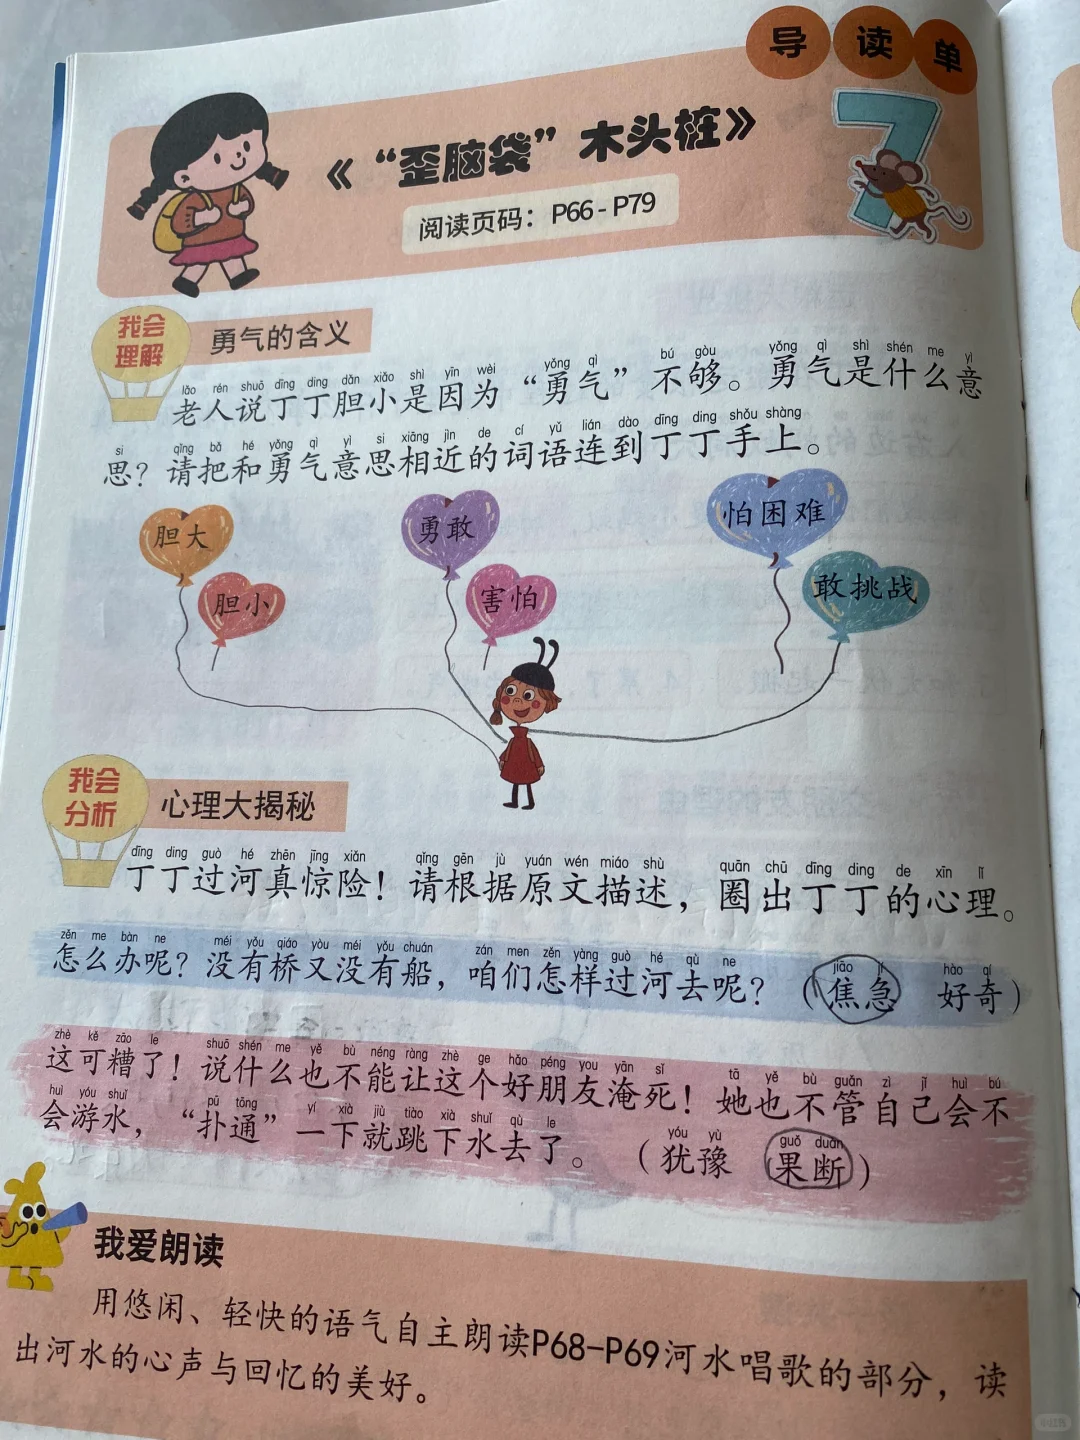 导读单
《“歪脑袋”木头桩》
7
阅读页码：P66-P79
我会
理解
勇气的含义
lǎo rén shuō dīng ding dǎn xiǎo shì yīn wèi yǒng qì bú gòu yǒng qì shì shén me yì
老人说丁丁胆小是因为“勇气”不够。勇气是什么意
si qǐng bǎ hé yǒng qì yì si xiāng jìn de cí yǔ lián dào dīng ding shǒu shàng
思？请把和勇气意思相近的词语连到丁丁手上。
胆大
勇敢
怕困难
胆小
害怕
敢挑战
我会
分析
心理大揭秘
dīng ding guò hé zhēn jīng xiǎn qǐng gēn jù yuán wén miáo shù quān chū dīng ding de xīn lǐ
丁丁过河真惊险！请根据原文描述，圈出丁丁的心理。
zěn me bàn ne méi yǒu qiáo yòu méi yǒu chuán zán men zěn yàng guò hé qù ne jiāo jí hào qí
怎么办呢？没有桥又没有船，咱们怎样过河去呢？（焦急 好奇）
zhè kě zāo le shuō shén me yě bù néng ràng zhè ge hǎo péng you yān sǐ tā yě bù guǎn zì jǐ huì bú
这可糟了！说什么也不能让这个好朋友淹死！她也不管自己会不
huì yóu shuǐ pū tōng yí xià jiù tiào xià shuǐ qù le yóu yù guǒ duàn
会游水，“扑通”一下就跳下水去了。（犹豫 果断）
我爱朗读
用悠闲、轻快的语气自主朗读P68-P69河水唱歌的部分，读
出河水的心声与回忆的美好。